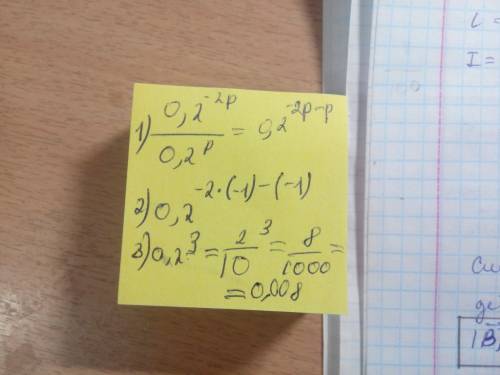 1) 0,2^-2p / 0,2^p = 0,2^-2p-p
2) 0,2^-2·(-1)-(-1)
3) 0,2^3 = 2/10^3 = 8/1000 =
= 0,008
L =
I =
|B|